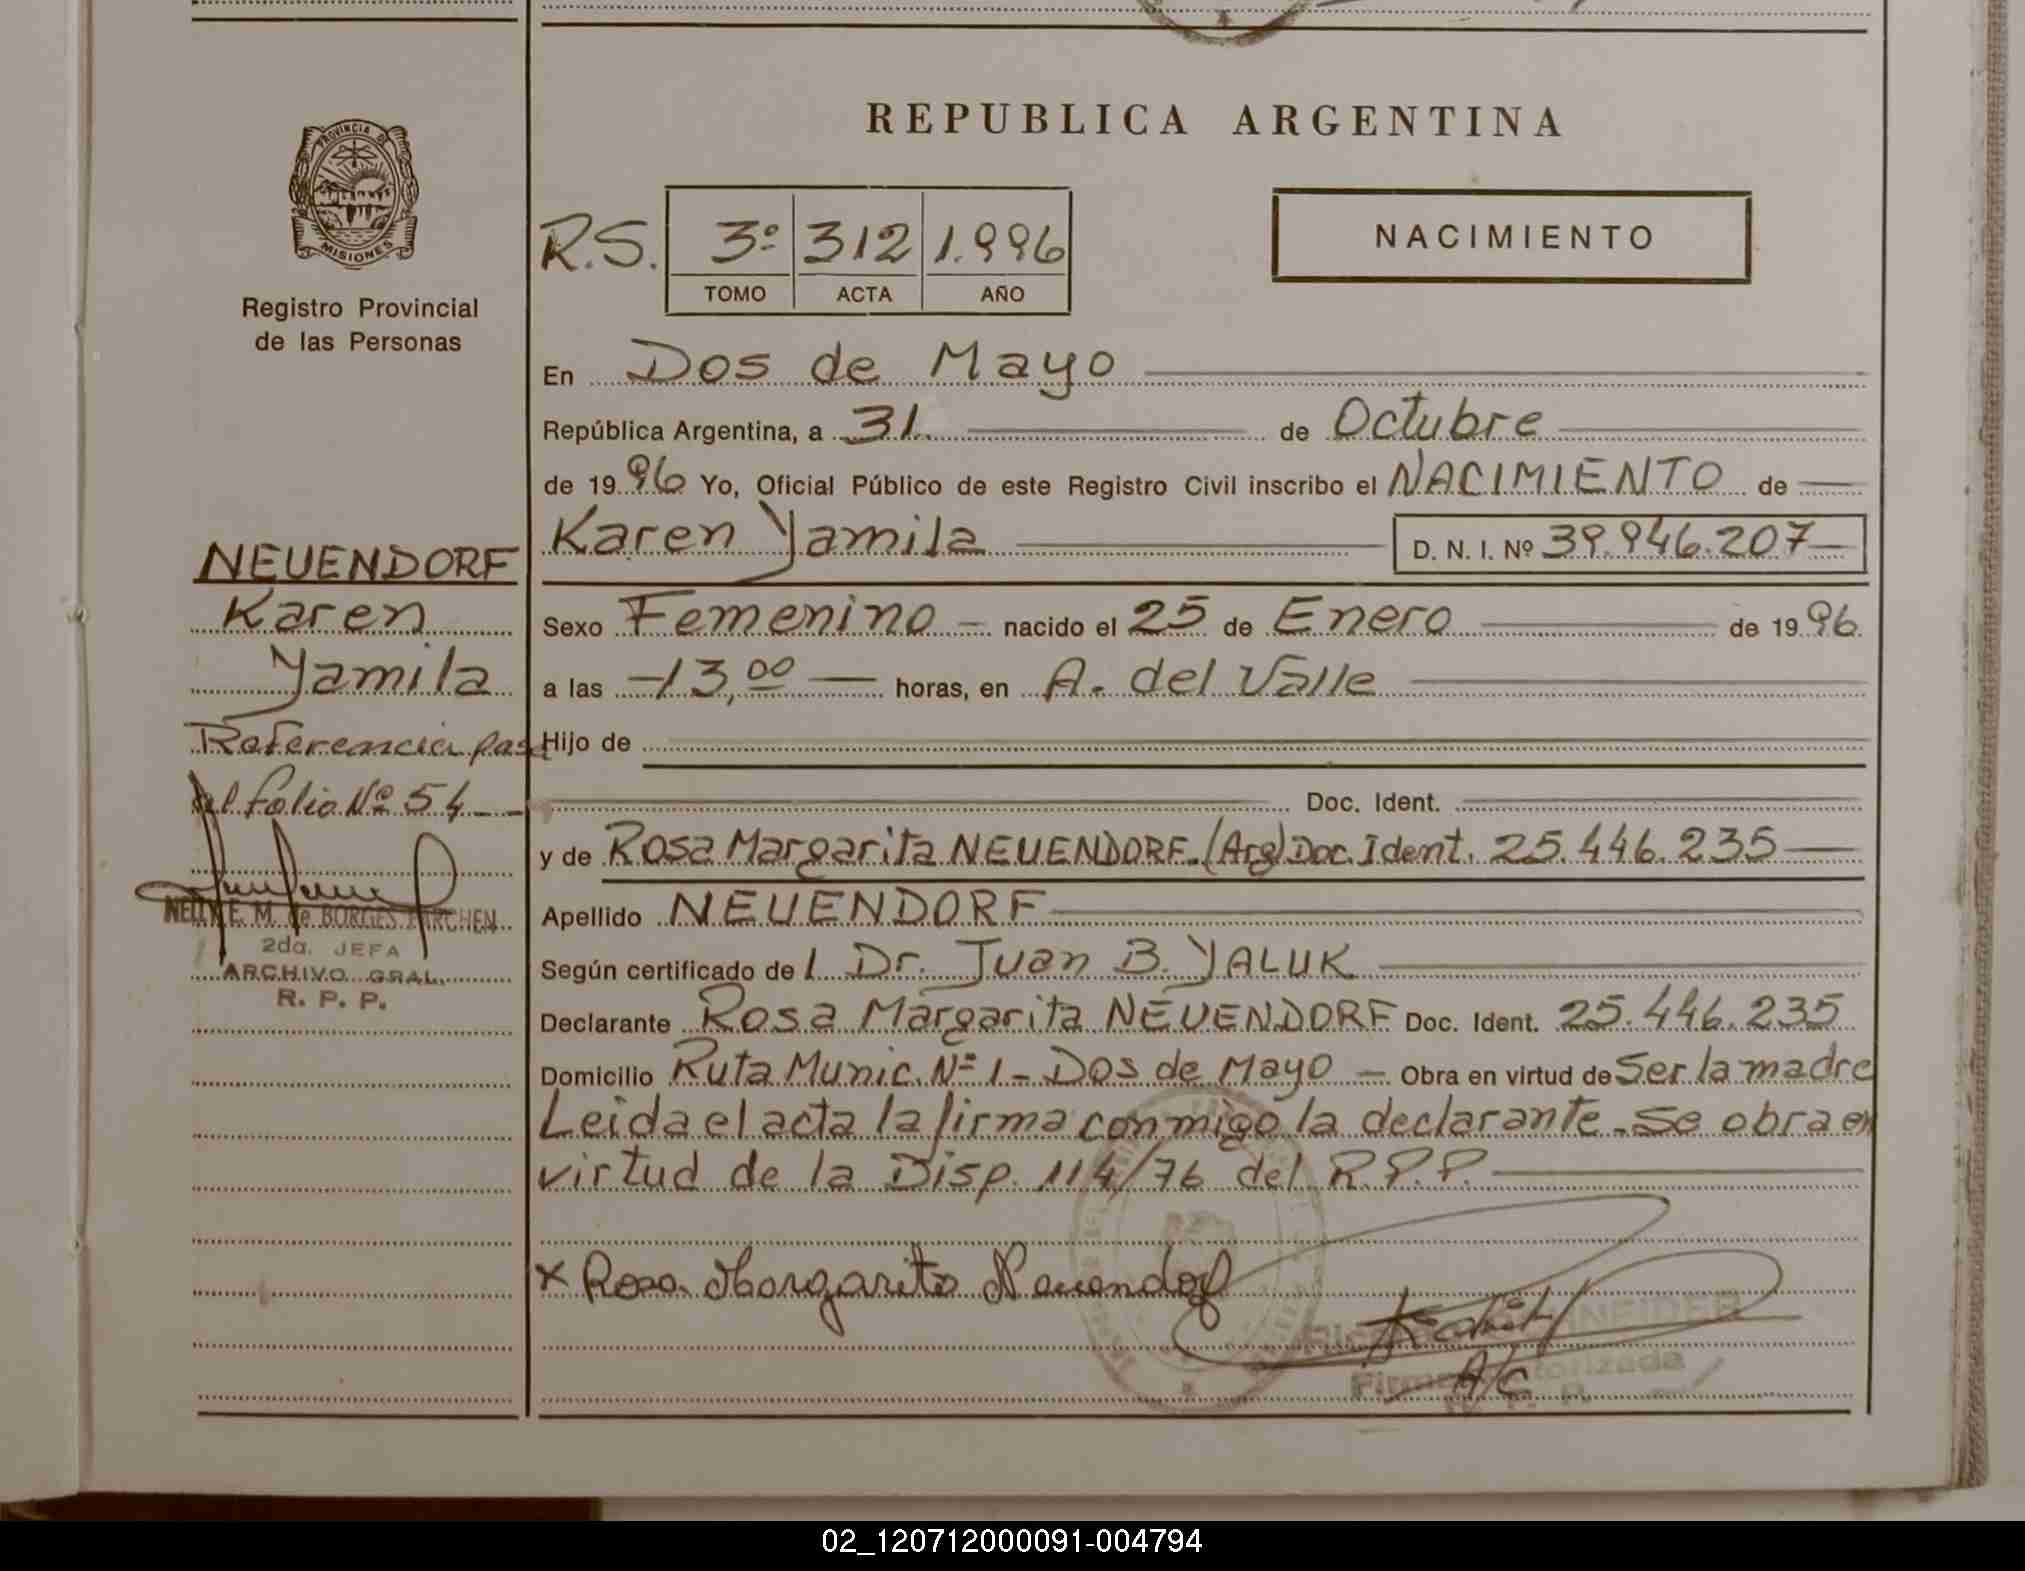 REPUBLICA ARGENTINA
PROVINCIA DE
MISIONES
Registro Provincial
de las Personas
R.S. 3º 312 1.996
TOMO ACTA AÑO
NACIMIENTO
En Dos de Mayo
República Argentina, a 31 de Octubre
de 1996 Yo, Oficial Público de este Registro Civil inscribo el NACIMIENTO de
Karen Yamila D. N. I. Nº 39.946.207
NEUENDORF
Karen
Yamila
Referencia pasa
al folio Nº 54
NELLY E. M. de BORGES
2da. JEFA
ARCHIVO GRAL.
R. P. P.
Sexo Femenino nacido el 25 de Enero de 1996
a las 13,00 horas, en A. del Valle
Hijo de
Doc. Ident.
y de Rosa Margarita NEUENDORF.(Arg) Doc. Ident. 25.446.235
Apellido NEUENDORF
Según certificado de l Dr. Juan B. YALUK
Declarante Rosa Margarita NEUENDORF Doc. Ident. 25.446.235
Domicilio Ruta Munic. Nº 1 - Dos de Mayo Obra en virtud de Ser la madre
Leida el acta la firma conmigo la declarante. Se obra en
virtud de la Disp. 114/76 del R.P.P.
x Rosa Margarita Neuendorf
A/C
02_120712000091-004794